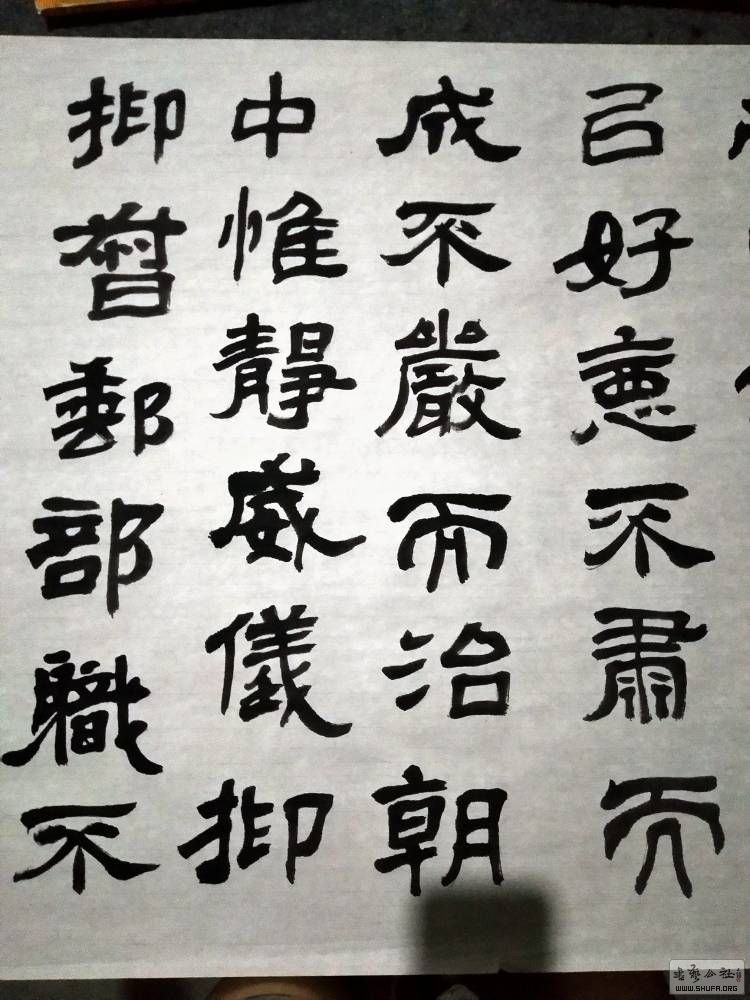 㠯好惡不肅而
成不嚴而治朝
中惟靜威儀抑
抑督郵部職不
书艺公社
WWW.SHUFA.ORG